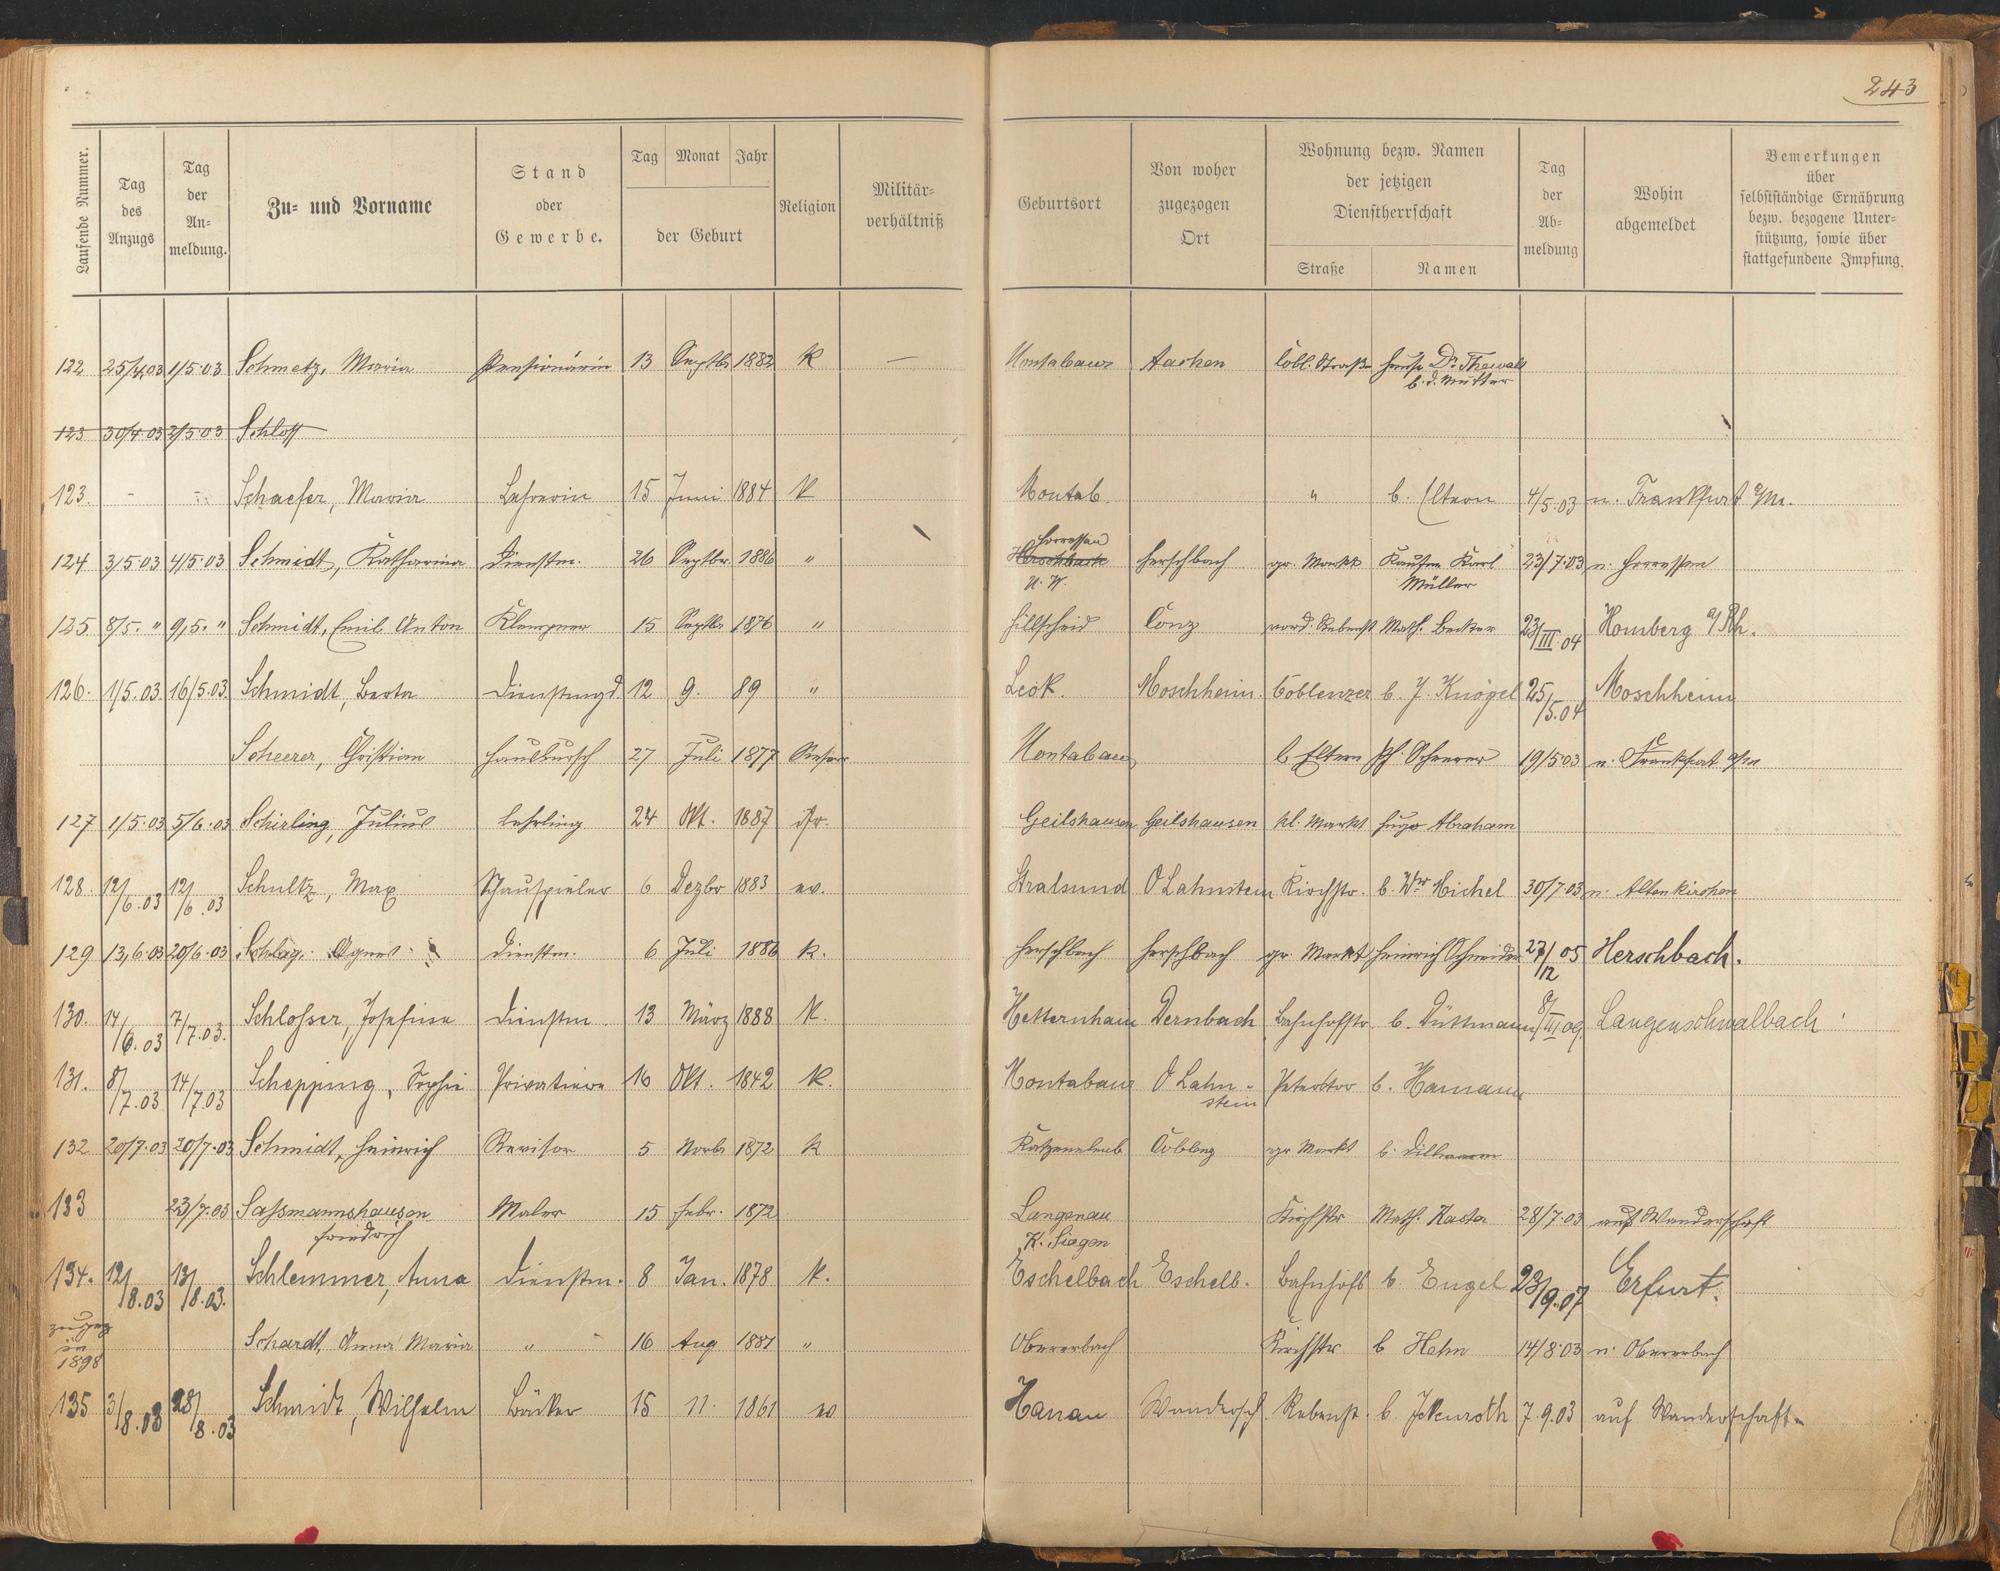 243
Laufende Nummer. Tag des Anzugs Tag der An- meldung. Zu- und Vorname Stand oder Gewerbe. Tag Monat Jahr der Geburt Religion Militär- verhältniß Geburtsort Von woher zugezogen Ort Wohnung bezw. Namen der jetzigen Dienstherrschaft Straße Namen Tag der Ab- meldung Wohin abgemeldet Bemerkungen über selbstständige Ernährung bezw. bezogene Unter- stützung, sowie über stattgefundene Impfung.
122 25/4.03 1/5.03 Schmetz, Maria Pensionärin 13 Septbr 1882 K — Montabaur Aachen Cobl. Straße Dr. Thewalt
b. d. Mutter
123 30/4.03 2/5.03 Schloss
123. - - Schaefer, Maria Lehrerin 15 Juni 1884 K Montab. " b. Eltern 4/5.03 n. Frankfurt a/M.
Horressen
124 3/5.03 4/5.03 Schmidt, Katharina Dienstm. 26 Septbr. 1886 " Herschbach Herschbach gr. Markt Kaufm Karl 23/7.03 n. Horressen
U. W. Müller
125 8/5. " 9/5. " Schmidt, Emil Anton Klempner 15 Septbr 1876 " Hillscheid Conz vord. Rebenst Math. Becker 23/III.04 Homberg a/Rh.
126. 1/5.03. 16/5.03. Schmidt, Berta Dienstmgd. 12 9. 89 " Moschheim. Coblenzer b. J. Knögel 25/5.04 Moschheim
Scheerer, Christian Hausbursch 27 Juli 1877 Montabaur b Eltern Scheerer 19/5.03 n. Frankfurt a/M
127 1/5.03 5/6.03 Schirling, Julius Lehrling 24 Okt. 1887 isr. Geilshausen Geilshausen kl. Markt Hugo Abraham
128. 12/6.03 12/6.03 Schultz, Max Schauspieler 6 Dezbr 1883 ev. Stralsund O Lahnstein Kirchstr. b. Wwe Michel 30/7.03 n. Altenkirchen
129 13/6.03 20/6.03 Schlag. Agnes Dienstm. 6 Juli 1886 k. Herschbach Herschbach gr. Markt Heinrich Schneider 27/12 05 Herschbach.
130. 14/6.03 7/7.03. Schlosser, Josefine Dienstm. 13 März 1888 K. Hetternhain Dernbach Bahnhofstr. b. Düttmann 8/III 09. Langenschwalbach
131. 8/7.03 14/7.03 Schepping, Sophie Privatiere 16 Okt. 1842 K. Montabaur O Lahn- Peterstor b. Hamann
stein
132 20/7.03 20/7.03 Schmidt, Heinrich Revisor 5 Novbr 1872 k Katzenelnb Coblenz gr Markt b. Dillmann
133 23/7.03 Sassmannshausen Maler 15 Febr. 1872 Langenau Kirchstr Math. Kaster 28/7.03 auf Wanderschaft
Friedrich K. Siegen
134. 12/8.03 13/8.03. Schlemmer, Anna Dienstm. 8 Jan. 1878 k. Eschelbach Eschelb. Bahnhofs b. Engel 23/9.07 Erfurt.
zugez
in Schardt, Anna Maria " 16 Aug 1881 " Obererbach Kirchstr b Hehn 14/8.03 n. Obererbach
1898
135 3/8.03 28/8.03 Schmidt, Wilhelm Bäcker 15 11. 1861 ev Hanau Wandersch Rebenst. b. 7.9.03 auf Wanderschaft